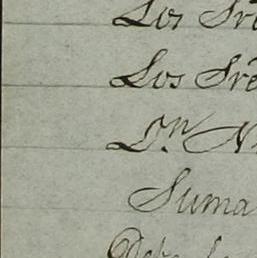 Los Sre
Los Sre
Dn. N
Suma